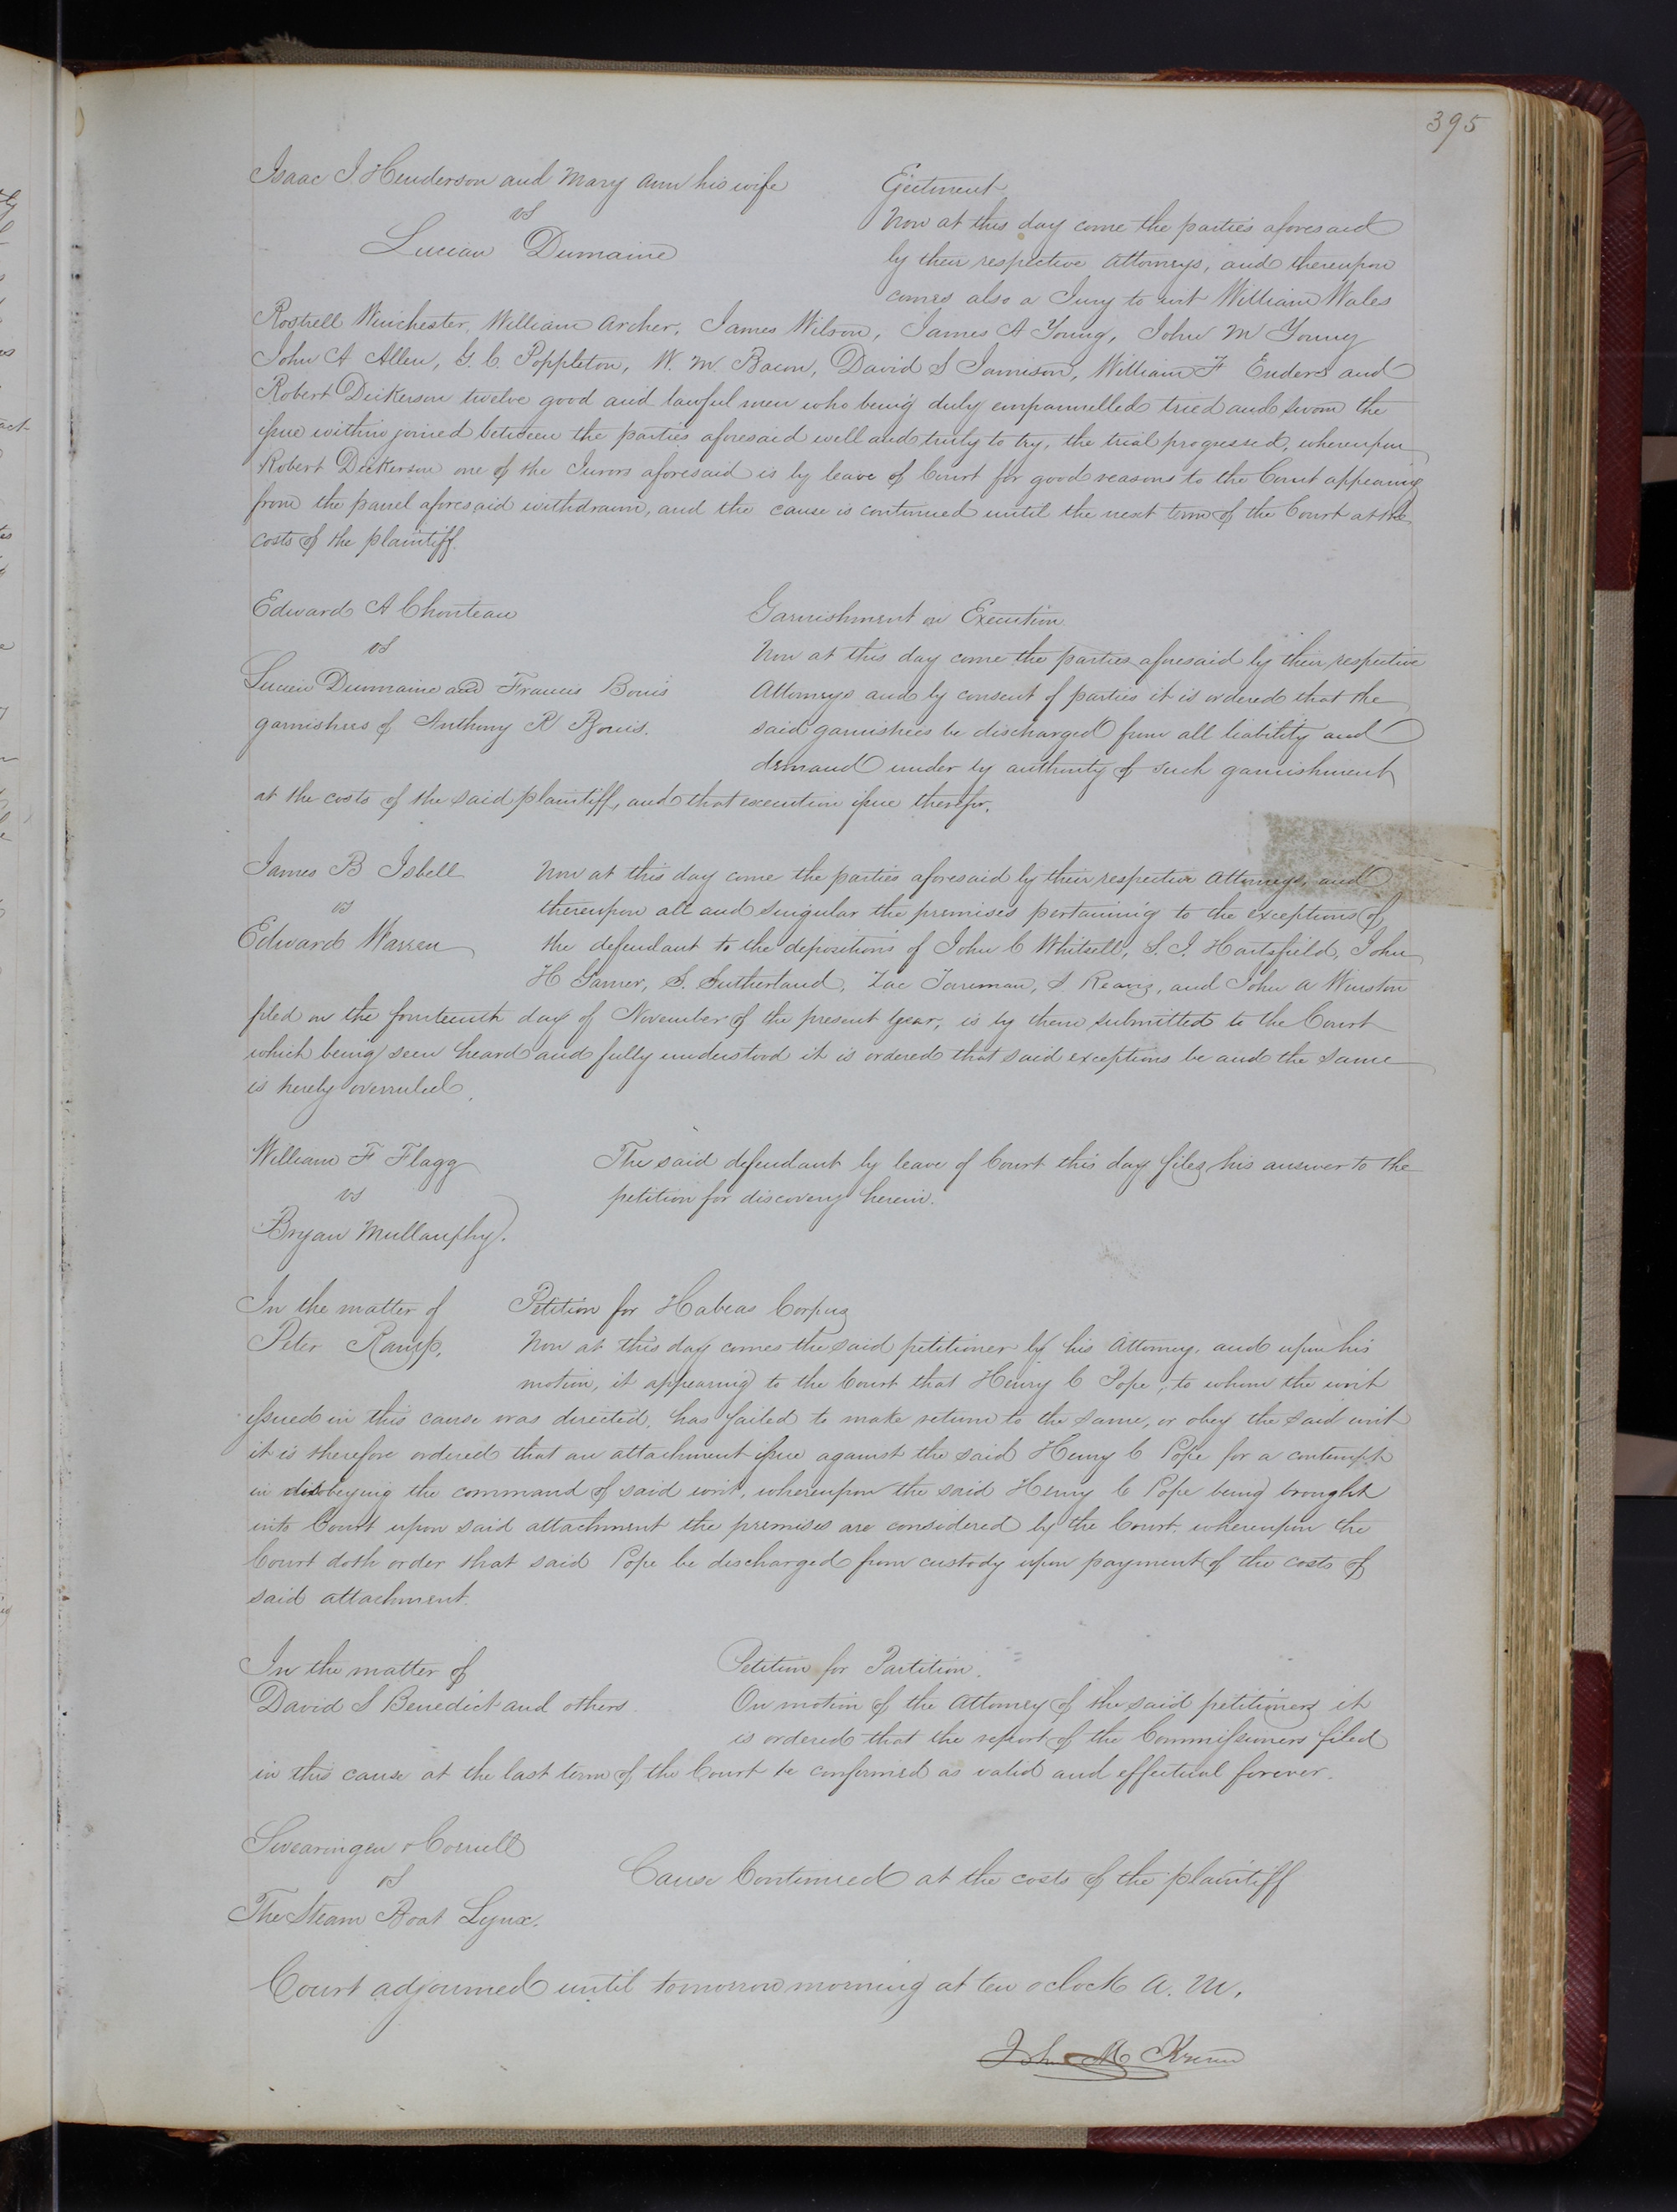 395
Isaac J. Henderson and Mary Ann his wife
vs
Lucian Dumaine
Ejectment
Now at this day come the parties aforesaid
by their respective Attorneys, and thereupon
comes also a Jury to wit William Wales
Winchester, William Archer, James Wilson, James A Young, John M Young
John A Allen, G. C. Poppleton, W. M. Bacon, David S Jamison, William F Enders and
Robert Dickerson twelve good and lawful men who being duly empannelled tried and sworn the
issue within joined between the parties aforesaid well and truly to try, the trial progressed, whereupon
Robert Dickerson one of the Jurors aforesaid is by leave of Court for good reasons to the Court appearing
from the panel aforesaid withdrawn, and the cause is continued until the next term of the Court at the
costs of the plaintiff.
Edward A Chouteau
vs
Lucien Dumaine and Francis Bouis
garnishees of Anthony R Bouis.
Garnishment on Execution
Now at this day come the parties aforesaid by their respective
Attorneys and by consent of parties it is ordered that the
said garnishees be discharged from all liability and
demand under by authority of such garnishment
at the costs of the said plaintiff, and that execution issue therefor.
James B Isbell
vs
Edward Warren
Now at this day come the parties aforesaid by their respective Attorneys, and
thereupon all and singular the premises pertaining to the exceptions of
the defendant to the depositions of John C Whitsell, S. J. Hartsfield, John
H Garner, S. Sutherland, Zac , S , and John A Winston
filed on the fourteenth day of November of the present year, is by them submitted to the Court
which being seen heard and fully understood it is ordered that said exceptions be and the same
is hereby overruled.
William F Flagg
vs
Bryan Mullanphy.
The said defendant by leave of Court this day files his answer to the
petition for discovery herein.
In the matter of
Peter Ramp,
Petition for Habeas Corpus
Now at this day comes the said petitioner by his Attorney, and upon his
motion, it appearing to the Court that Henry C Pope, to whom the writ
issued in this cause was directed, has failed to make return to the same, or obey the said writ
it is therefore ordered that an attachment issue against the said Henry C Pope for a contempt
in disobeying the command of said writ, whereupon the said Henry C Pope being brought
into Court upon said attachment the premises are considered by the Court, whereupon the
Court doth order that said Pope be discharged from custody upon payment of the costs of
said attachment.
In the matter of
David S Benedict and others.
Petition for Partition.
On motion of the Attorney of the said petitioners it
is ordered that the report of the Commissioners filed
in this cause at the last term of the Court be confirmed as valid and effectual forever.
Swearingen &
vs
The Steam Boat Lynx.
Cause Continued at the costs of the plaintiff
Court adjourned until tomorrow morning at ten oclock A. M.
John M Krum